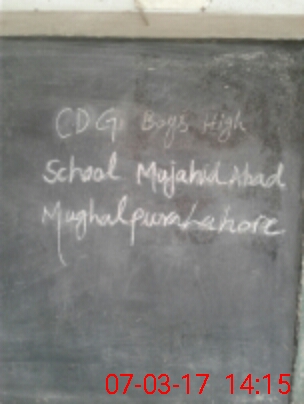 CDG Boys High
School Mujahid Abad
Mughalpura Lahore
07-03-17 14:15